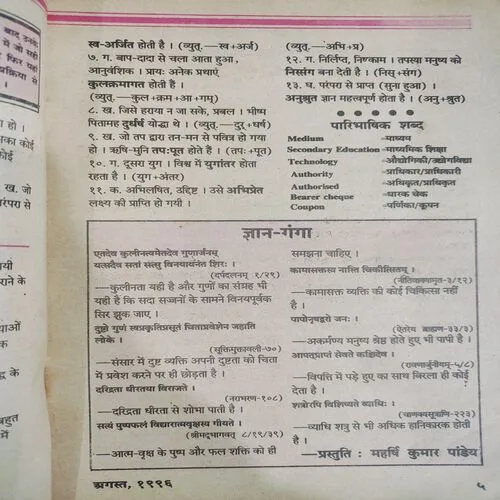 बाद उनके
में जो सही
फिर ऐसा
प्रक्रिया से
हो ।
सका कोई
कोई
ख. जो
परंपरा से
यी
राने के
थाओं
द्ध के
बहुत
में
स्व-अर्जित होती है । (व्युत्.—स्व+अर्ज)
७. ग. बाप-दादा से चला आता हुआ,
आनुवंशिक । प्रायः अनेक प्रथाएं
कुलक्रमागत होती हैं ।
(व्युत्.—कुल+क्रम+आ+गम्)
८. ख. जिसे हराया न जा सके, प्रबल । भीष्म
पितामह दुर्धर्ष योद्धा थे । (व्युत्.—दुर्+धर्ष)
९. ख. जो तप द्वारा तन-मन से पवित्र हो गया
हो । ऋषि-मुनि तपःपूत होते हैं । (तपः+पूत)
१०. ग. दूसरा युग । विश्व में युगांतर होता
रहता है । (युग+अंतर)
११. क. अभिलषित, उद्दिष्ट । उसे अभिप्रेत
लक्ष्य की प्राप्ति हो गयी ।
(व्युत्.—अभि+प्र)
१२. ग. निर्लिप्त, निष्काम । तपस्या मनुष्य को
निस्संग बना देती है । (निस्+संग)
१३. घ. परंपरा से प्राप्त (सुना हुआ) ।
अनुश्रुत ज्ञान महत्त्वपूर्ण होता है । (अनु+श्रुत)
पारिभाषिक शब्द
Medium —माध्यम
Secondary Education —माध्यमिक शिक्षा
Technology —औद्योगिकी/प्रौद्योगिकी
Authority —प्राधिकार/प्राधिकारी
Authorised —अधिकृत/प्राधिकृत
Bearer cheque —धारक चेक
Coupon —पर्णिका/कूपन
ज्ञान-गंगा
एतदेव कुलीनत्वमेतदेव गुणार्जनम्
यत्सदैव सतां सत्सु विनयावनतं शिरः ।
(दर्पदलनम् १/२९)
—कुलीनता यही है और गुणों का संग्रह भी
यही है कि सदा सज्जनों के सामने विनयपूर्वक
सिर झुक जाए ।
दुष्टो गुणं स्वप्रकृतिप्रसूतं चिताप्रवेशेन जहाति
लोके ।
(सूक्तिमुक्तावली-७०)
—संसार में दुष्ट व्यक्ति अपनी दुष्टता को चिता
में प्रवेश करने पर ही छोड़ता है ।
दरिद्रता धीरतया विराजते ।
(नराभरण-१०८)
—दरिद्रता धीरता से शोभा पाती है ।
सत्यं पुष्पफलं विद्यादात्मवृक्षस्य गीयते ।
(श्रीमद्भागवत् ८/१९/३९)
—आत्म-वृक्ष के पुष्प और फल शक्ति को ही
समझना चाहिए ।
कामासक्तस्य नास्ति चिकित्सितम् ।
(नीतिवाक्यामृत-३/१२)
—कामासक्त व्यक्ति की कोई चिकित्सा नहीं
है ।
पापोनृषद्वरो जनः ।
(ऐतरेय ब्राह्मण-३३/३)
—अकर्मण्य मनुष्य श्रेष्ठ होते हुए भी पापी है ।
आपत्प्राप्तं सेवते कश्चिदेव ।
(रावणार्जुनीयम्-५/८)
—विपत्ति में पड़े हुए का साथ बिरला ही कोई
देता है ।
शत्रोरपि विशिष्यते व्याधिः ।
(चाणक्यसूत्राणि-२२३)
—व्याधि शत्रु से भी अधिक हानिकारक होती
है ।
—प्रस्तुति : महर्षि कुमार पांडेय
अगस्त, १९९६
५